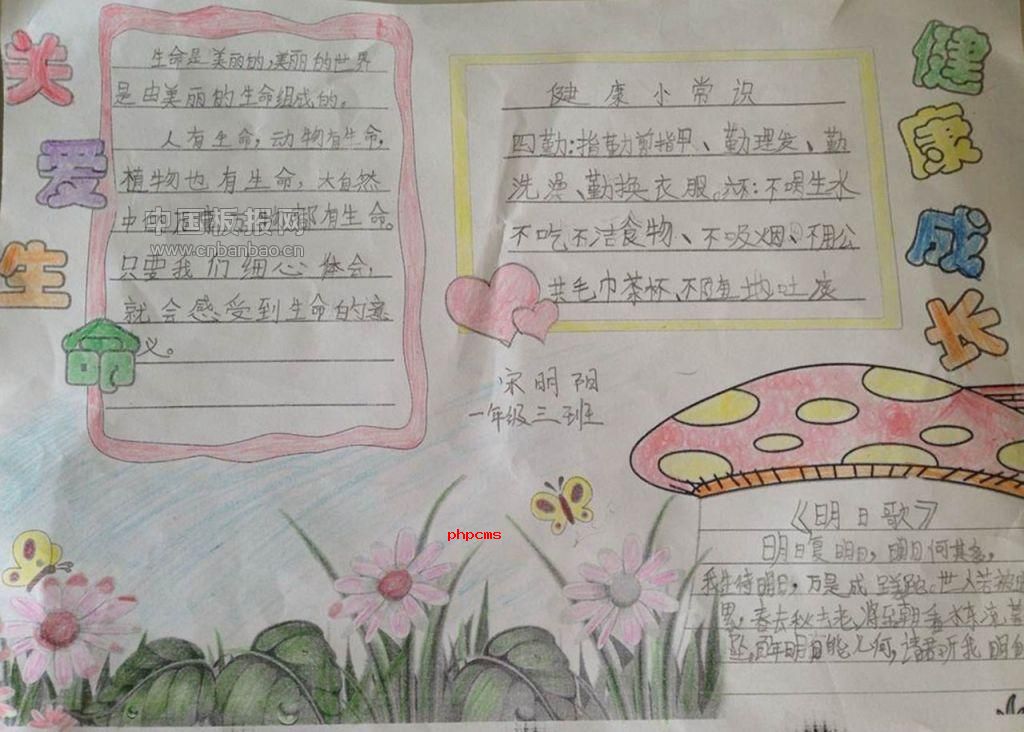 关爱生命
生命是美丽的，美丽的世界
是由美丽的生命组成的。
人有生命，动物有生命，
植物也有生命，大自然
中 都有生命。
只要我们细心体会，
就会感受到生命的意
义。
中国板报网
www.cnbanbao.cn
健康小常识
四勤：指勤剪指甲、勤理发、勤
洗澡、勤换衣服。六不：不喝生水
不吃不洁食物、不吸烟、不用公
共毛巾茶杯、不随地吐痰
健康成长
宋明阳
一年级三班
phpcms
《明日歌》
明日复明日，明日何其多，
我生待明日，万是成蹉跎。世人若被明
累，春去秋去老将至朝看水东流暮
坠，百年明日能几何，请君听我明日